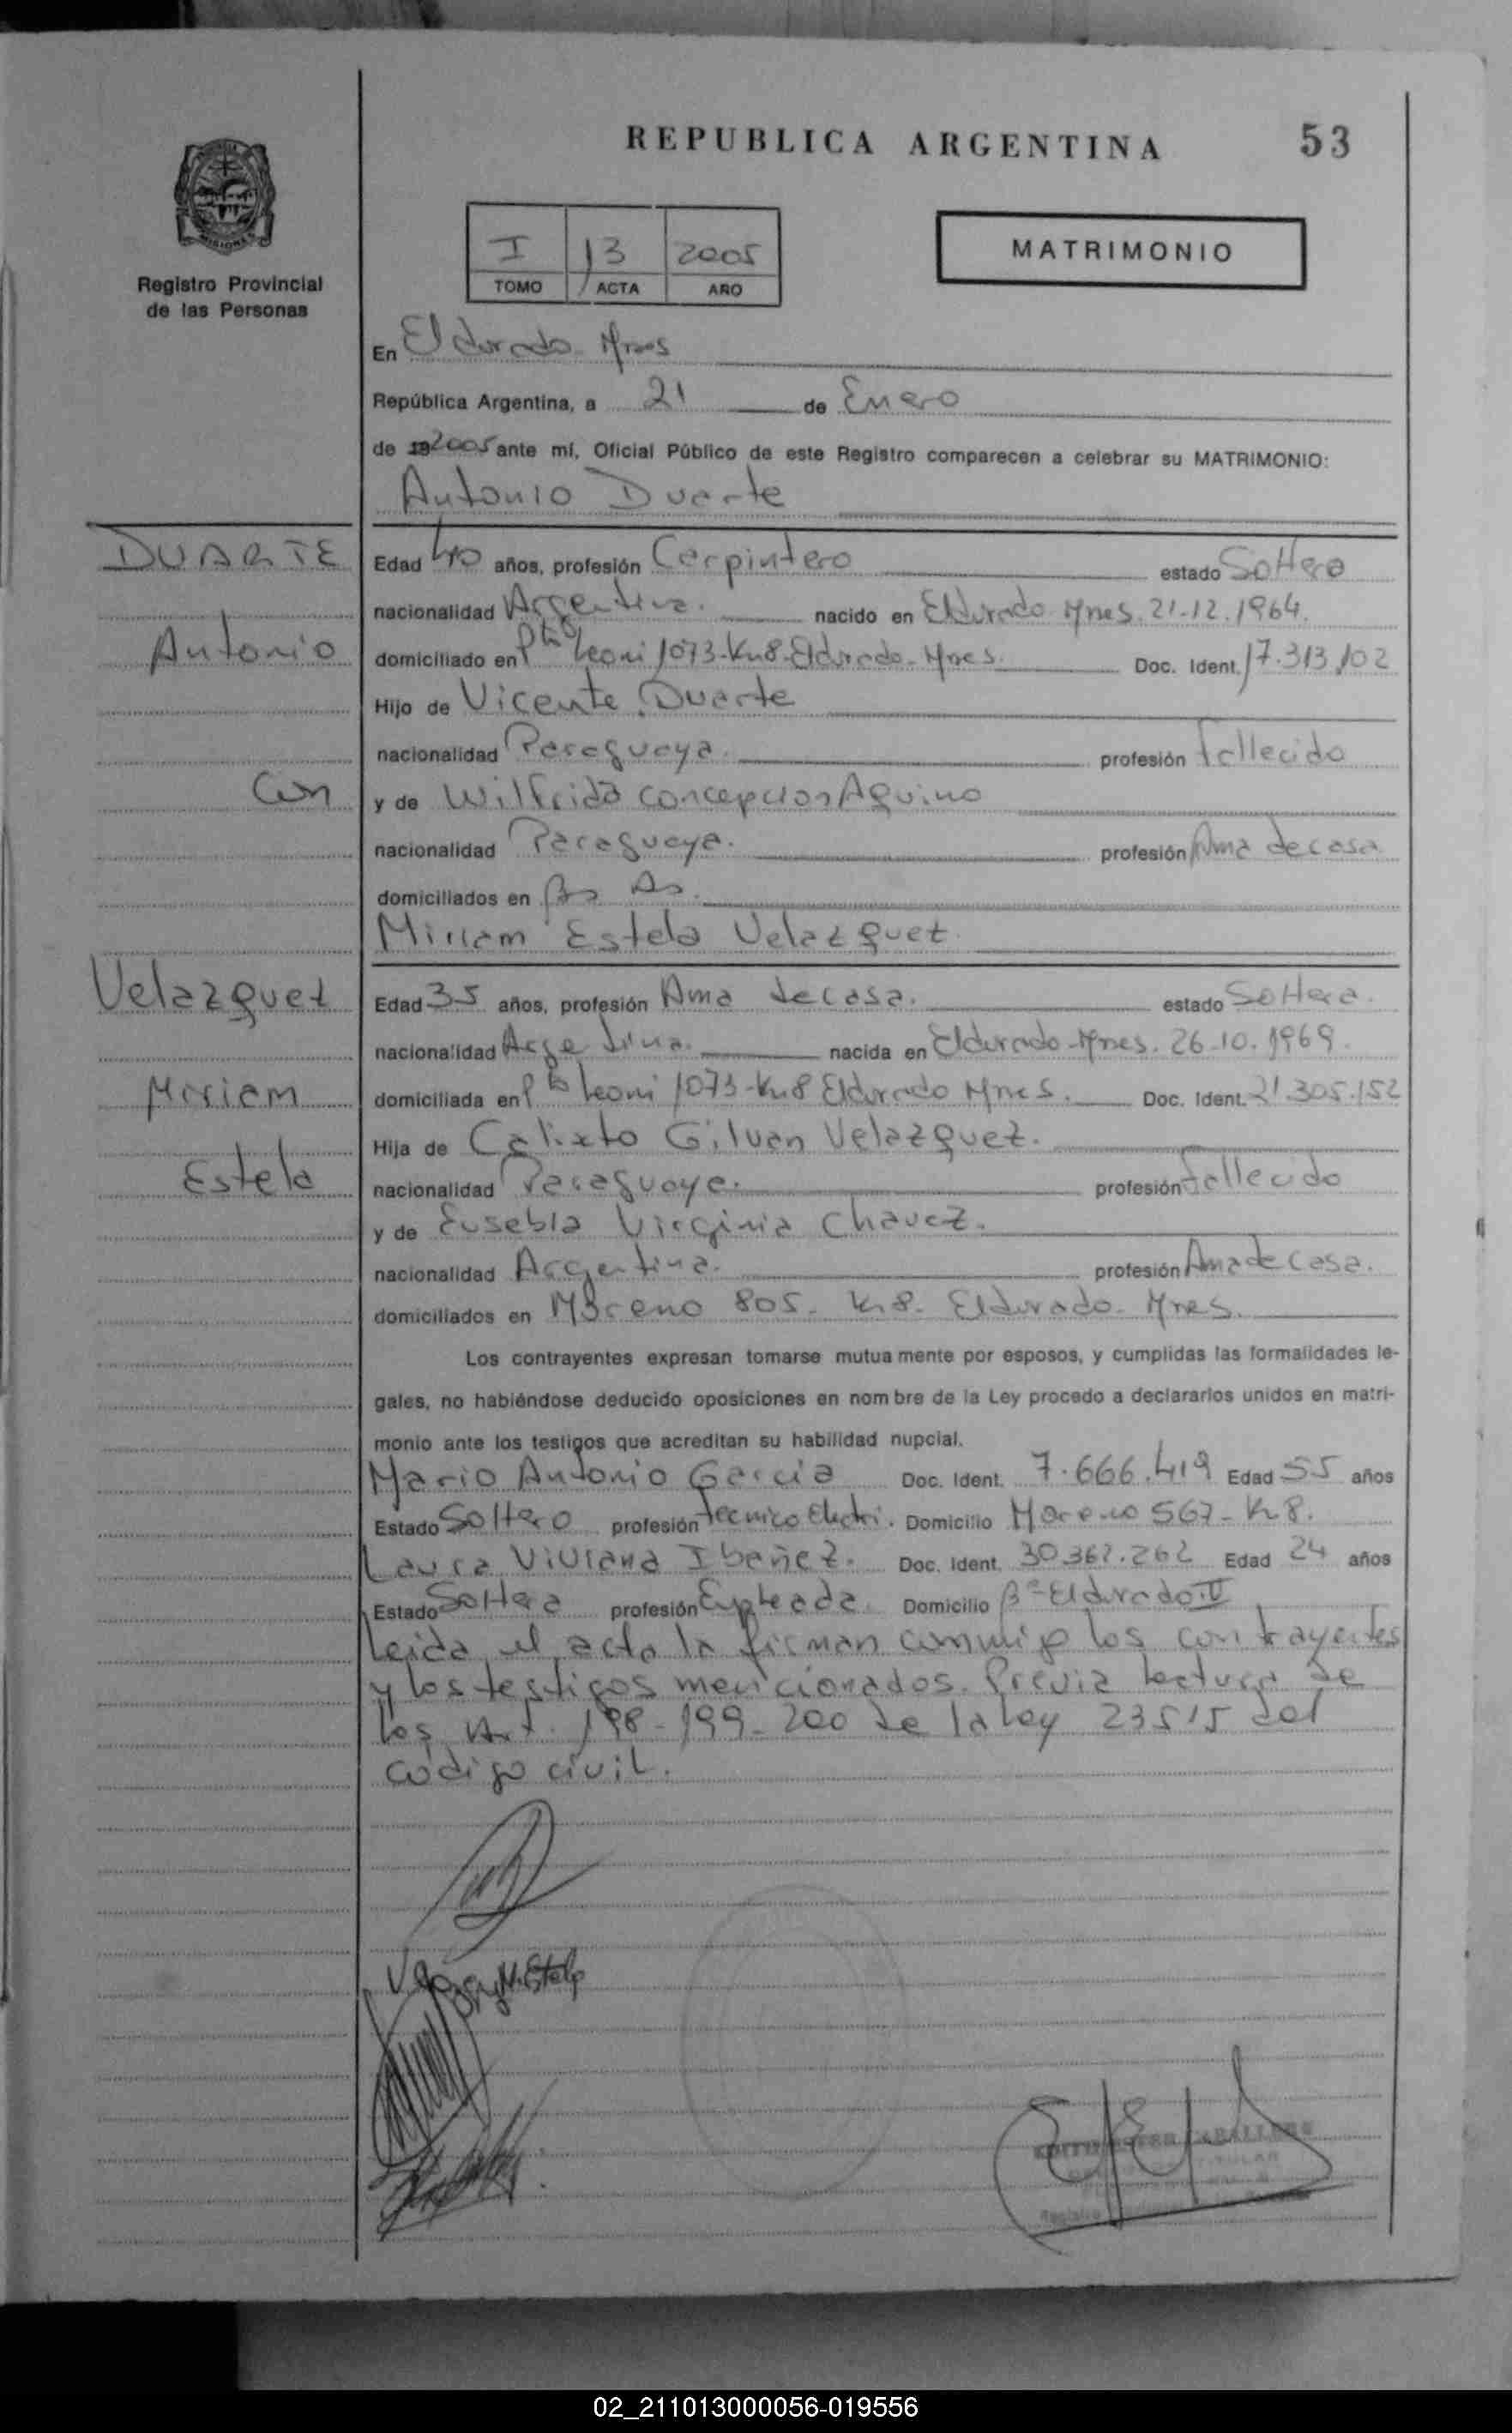 REPUBLICA ARGENTINA 53
MISIONES
Registro Provincial
de las Personas
I 13 2005
TOMO ACTA AÑO
MATRIMONIO
En Eldorado Mnes
República Argentina, a 21 de Enero
de 19 2005 ante mí, Oficial Público de este Registro comparecen a celebrar su MATRIMONIO:
Antonio Duarte
DUARTE
Antonio
Con
Velazquez
Miriam
Estela
Edad 40 años, profesión Carpintero estado Soltero
nacionalidad Argentina. nacido en Eldorado Mnes. 21-12.1964.
domiciliado en Pto Leoni 1073-Km8-Eldorado-Mnes. Doc. Ident. 17.313.102
Hijo de Vicente Duarte
nacionalidad Paraguaya profesión fallecido
y de Wilfrida Concepcion Aquino
nacionalidad Paraguaya. profesión Ama de casa
domiciliados en Bs As.
Miriam Estela Velazquez
Edad 35 años, profesión Ama de casa. estado Soltera.
nacionalidad Argentina. nacida en Eldorado-Mnes. 26-10.1969.
domiciliada en Pto Leoni 1073-Km8 Eldorado Mnes. Doc. Ident. 21.305.152
Hija de Calixto Gilvan Velazquez.
nacionalidad Paraguaya. profesión fallecido
y de Eusebia Virginia Chavez.
nacionalidad Argentina. profesión Ama de Casa.
domiciliados en Moreno 805- Km8- Eldorado- Mnes.
Los contrayentes expresan tomarse mutuamente por esposos, y cumplidas las formalidades le-
gales, no habiéndose deducido oposiciones en nombre de la Ley procedo a declararlos unidos en matri-
monio ante los testigos que acreditan su habilidad nupcial.
Mario Antonio Garcia Doc. Ident. 7.666.419 Edad 55 años
Estado Soltero profesión Tecnico Electri. Domicilio Moreno 567-Km8.
Laura Viviana Ibañez. Doc. Ident. 30.367.262 Edad 24 años
Estado Soltera profesión Empleada. Domicilio Bº-Eldorado IV
Leida el acta la firman conmigo los contrayentes
y los testigos mencionados. Previa lectura de
los Art. 198-199-200 de la ley 23515 del
codigo civil.
02_211013000056-019556